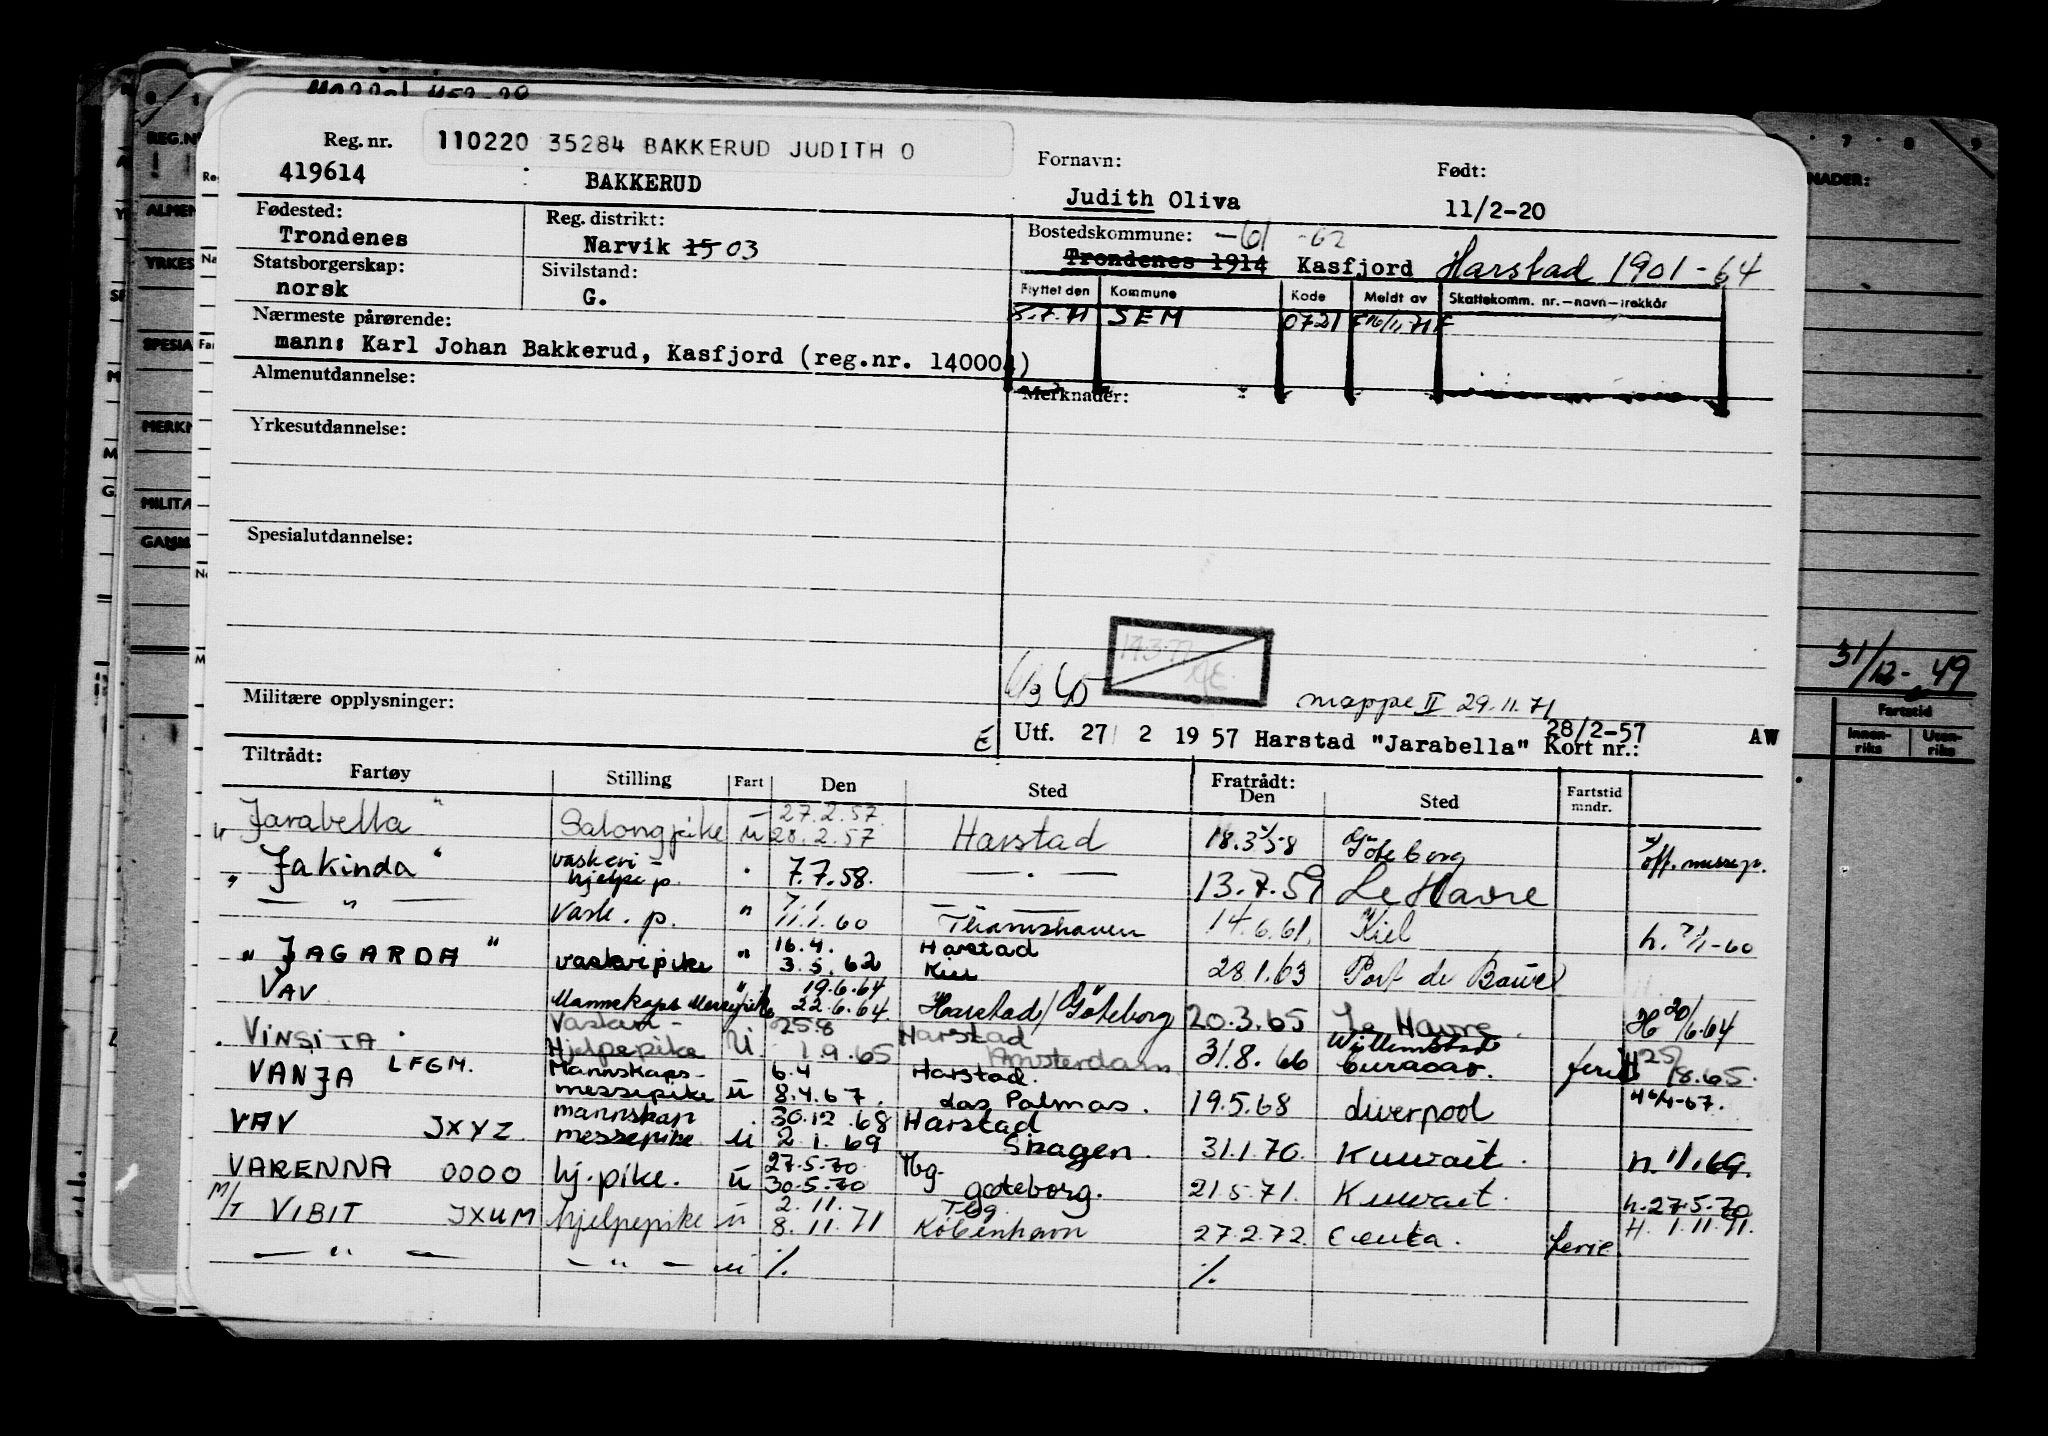 Reg. nr. 110220 35284 BAKKERUD JUDITH O Fornavn: Født:
419614 BAKKERUD Judith Oliva 11/2-20
Fødested: Reg. distrikt: Bostedskommune: -61 -62
Trondenes Narvik 15 03 Trondenes 1914 Kasfjord Harstad 1901-64
Statsborgerskap: Sivilstand: Flyttet den Kommune Kode Meldt av Skattekomm. nr.-navn-trekkår
norsk G. 5.7.71 SEM 0721
Nærmeste pårørende:
mann: Karl Johan Bakkerud, Kasfjord (reg.nr. 140004)
Almenutdannelse: Merknader:
Yrkesutdannelse:
Spesialutdannelse:
Militære opplysninger: mappe II 29.11.71
E Utf. 27 2 1957 Harstad "Jarabella" 28/2-57 Kort nr.: AW
Tiltrådt: Fratrådt:
Fartøy Stilling Fart Den Sted Den Sted Fartstid mndr.
27.2.57
" Jarabella " Salongpike u 28.2.57 Harstad 18.3.58 Göteborg
" Jakinda " vaskeri- hjelpe p. " 7.7.58. — " — 13.7.59 Le Havre
— " — Vask. p. " 11.1.60 Thamshavn 14.6.61. Kiel h. 7/1-60
16.4. Harstad
" JAGARDA " vaskeripike " 3.5.62 Kiel 28.1.63 Port de Bouc
19.6.64
VAV Mannskaps Messepike " 22.6.64 Harstad/Göteborg 20.3.65 Le Havre H 20/6.64
VINSITA Vaskeri- 25 8 Harstad Willemstad
Hjelpepike U 1.9.65 Amsterdam 31.8.66 Curacao. ferie H 25/8.65.
VANJA LFGM. Mannskaps- 6.4 Harstad.
messepike u 8.4.67. Las Palmas. 19.5.68 Liverpool H 6/4-67.
VAV JXYZ mannskap 30.12.68 Harstad
messepike u 2.1.69 Skagen. 31.1.70. Kuwait. h. 1/1.69.
27.5.70 Tbg.
VARENNA OOOO hj. pike. u 30.5.70 Goteborg. 21.5.71. Kuwait. h. 27.5.70
2.11. Tbg
M/T VIBIT JXUM hjelpepike u 8.11.71 København 27.2.72. Ceuta. ferie H. 1.11.71.
— " — — " — u %. %.
31/12-49
Fartstid
Innen-riks Uten-riks